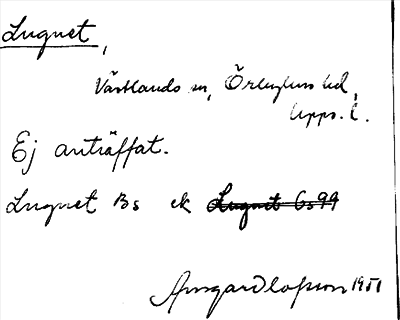 Lugnet,
Västlands sn, Örbyhus hd,
Upps. l.
Ej anträffat.
Lugnet Bs ek Lugnet Gs 99
1951